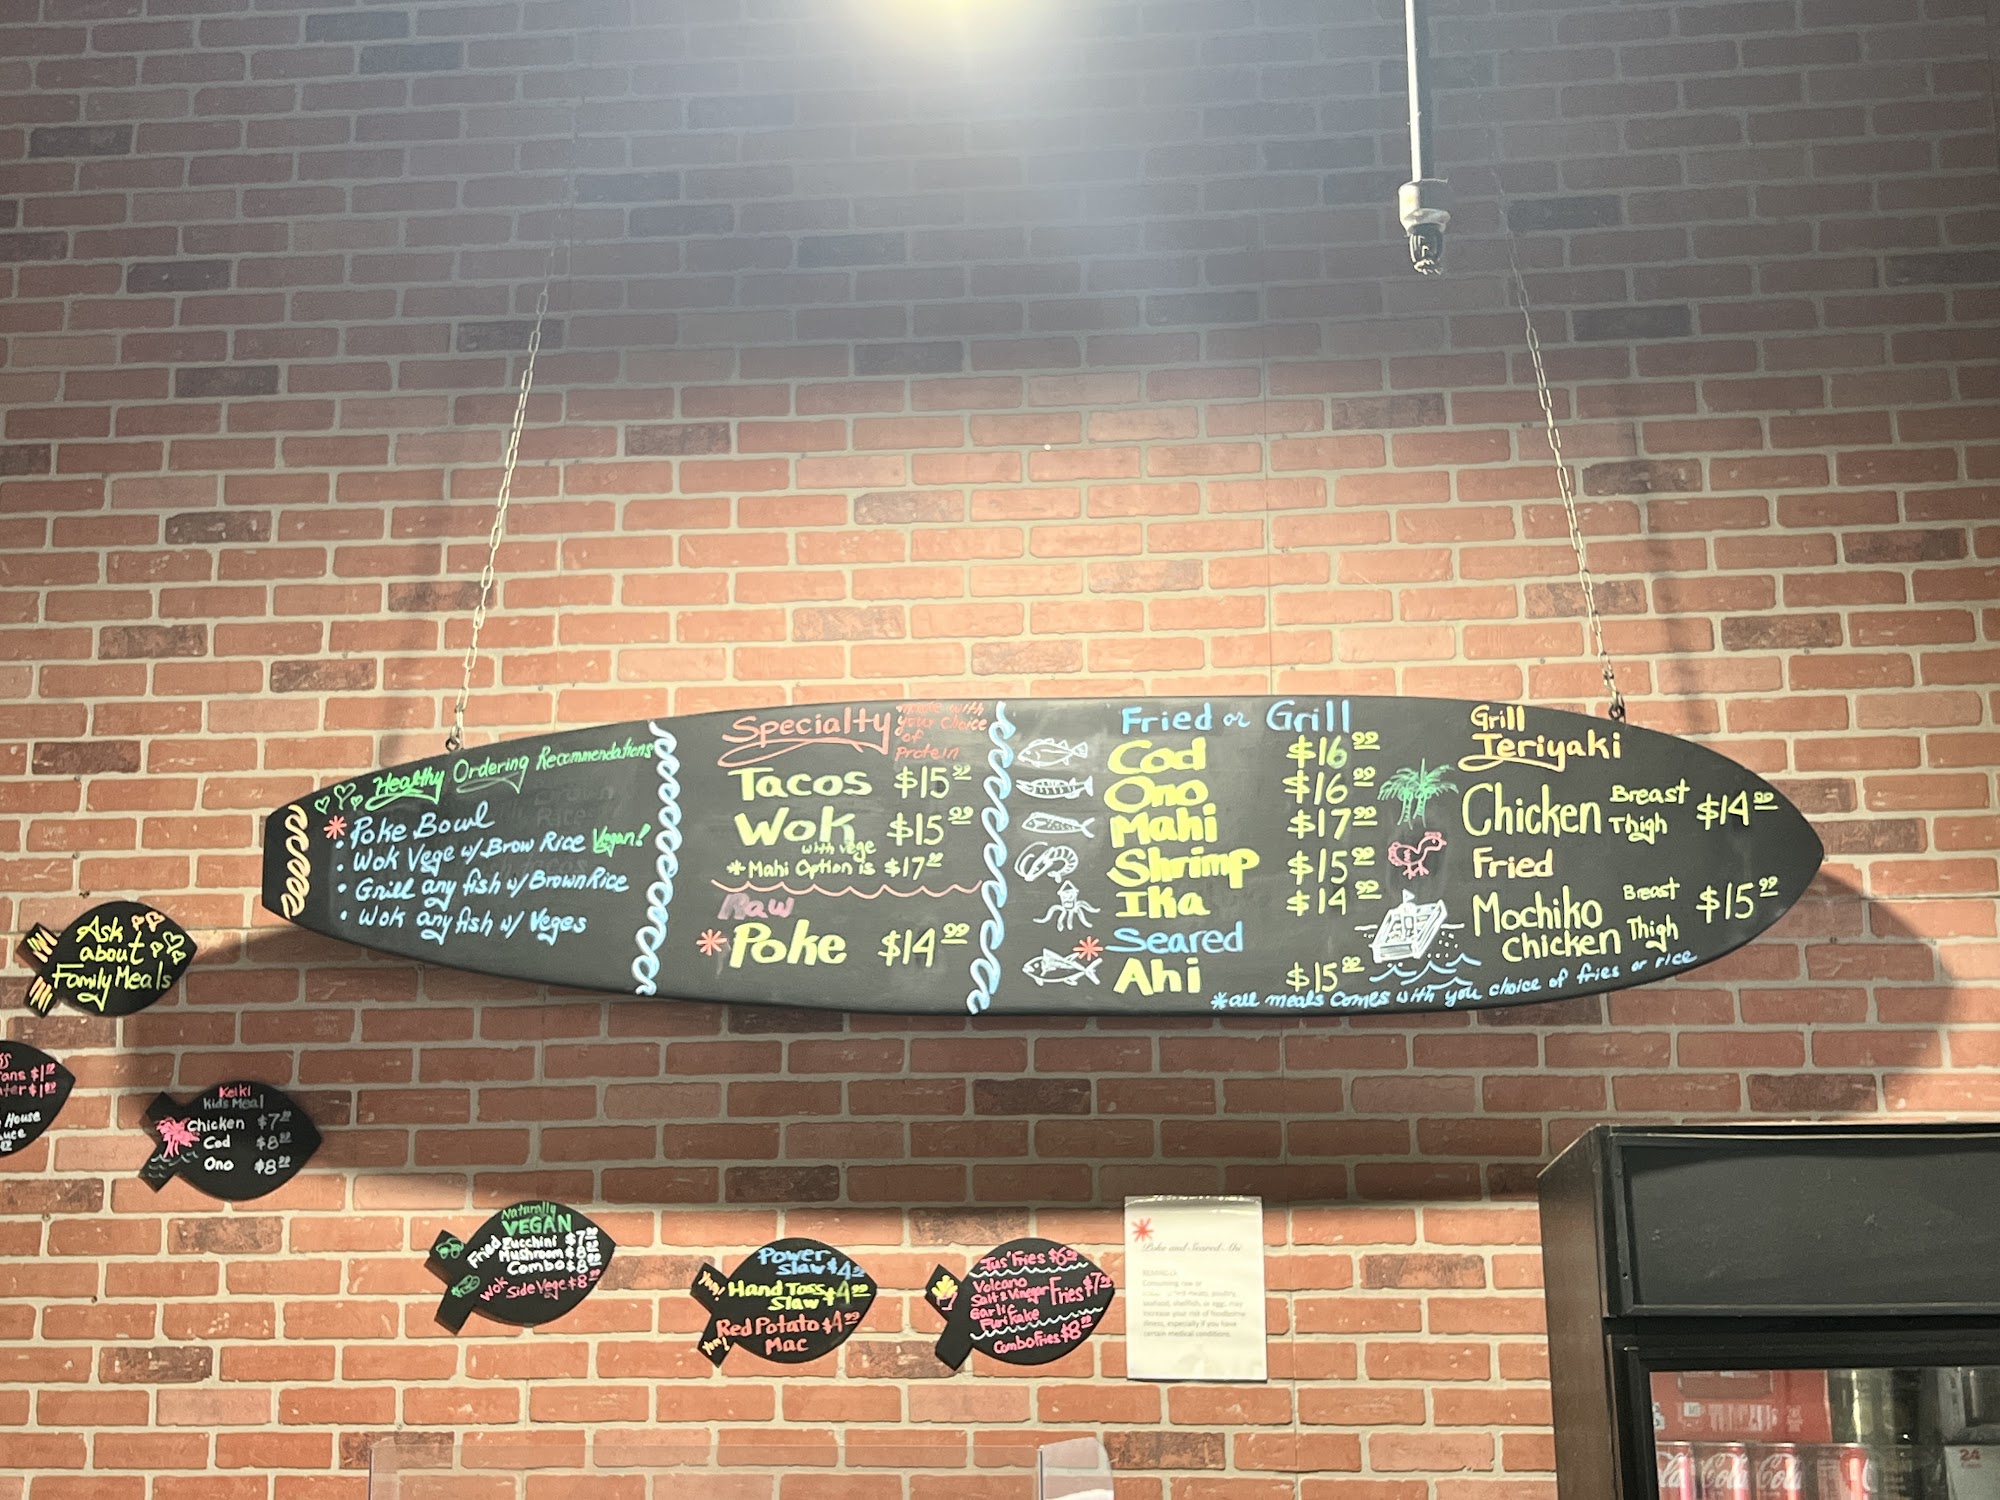 Healthy Ordering Recommendations
* Poke Bowl
• Wok Vege w/ Brow Rice Vegan!
• Grill any fish w/ Brown Rice
• Wok any fish w/ Veges
Specialty made with
your choice
of
Protein
Tacos $15.99
Wok $15.99
with vege
* Mahi Option is $17.99
Raw
* Poke $14.99
Fried or Grill
Cod $16.99
Ono $16.99
Mahi $17.99
Shrimp $15.99
Ika $14.99
* Seared
Ahi $15.99
Grill
Teriyaki
Chicken Breast
Thigh $14.99
Fried
Mochiko Breast
Chicken Thigh $15.99
*all meals comes with you choice of fries or rice
Ask
about
Family Meals
ans $1
ter $1
House
Keiki
Kids Meal
Chicken $7.99
Cod $8.99
Ono $8.99
Naturally
VEGAN
Fried
Zucchini $7.99
Mushroom $8.99
Combo $8.99
Wok Side Vege $8.99
Power
Slaw $4.99
Yum!
Hand Toss
Slaw $4.99
Red Potato $4.99
Mac
Yum!
Jus' Fries $6.99
Volcano
Salt & Vinegar
Garlic
Furikake
Fries $7.99
Combo Fries $8.99
*
Poke and Seared Ahi
Consuming raw or
meats, poultry,
seafood, shellfish, or eggs, may
increase your risk of foodborne
illness, especially if you have
certain medical conditions.
Cola
Cola
24